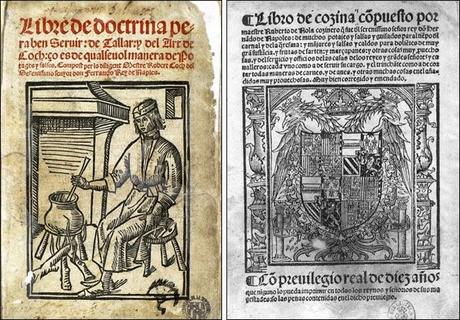 Libre de doctrina pe
ra ben Seruir: de Tallar: y del Art de
Coch: ço es de qualseuol manera de
y salses. Compost per lo diligent Mestre Robert Coch del
Serenissimo senyor don Ferrando Rey de Napols.
Libro de cozina cõpuesto por
maestre Ruberto de Nola cozinero que fue del serenissimo señor rey dõ Her
nãdo de Napoles: de muchos potajes y salsas y guisados para el tiẽpo del
carnal y de la q̃resma: y manjares y salsas y caldos para dolientes de muy
y frutas de sarten: y maçapanes: y otras cosas muy prouecho
sas. y del seruicio y officio de las casas delos reyes y grãdes señores y ca
ualleros: cada vno como a de seruir su cargo. y el trinchãte como a de cor
tar todas maneras de carnes, y de aues. y otras muchas cosas enel
añadidas muy prouechosas. Muy bien corregido y emendado.
Cõ preuilegio real de diez años
que ninguno lo pueda imprimir en todos los reynos y señorios de sus ma
gestades so las penas contenidas en el dicho preuilegio.